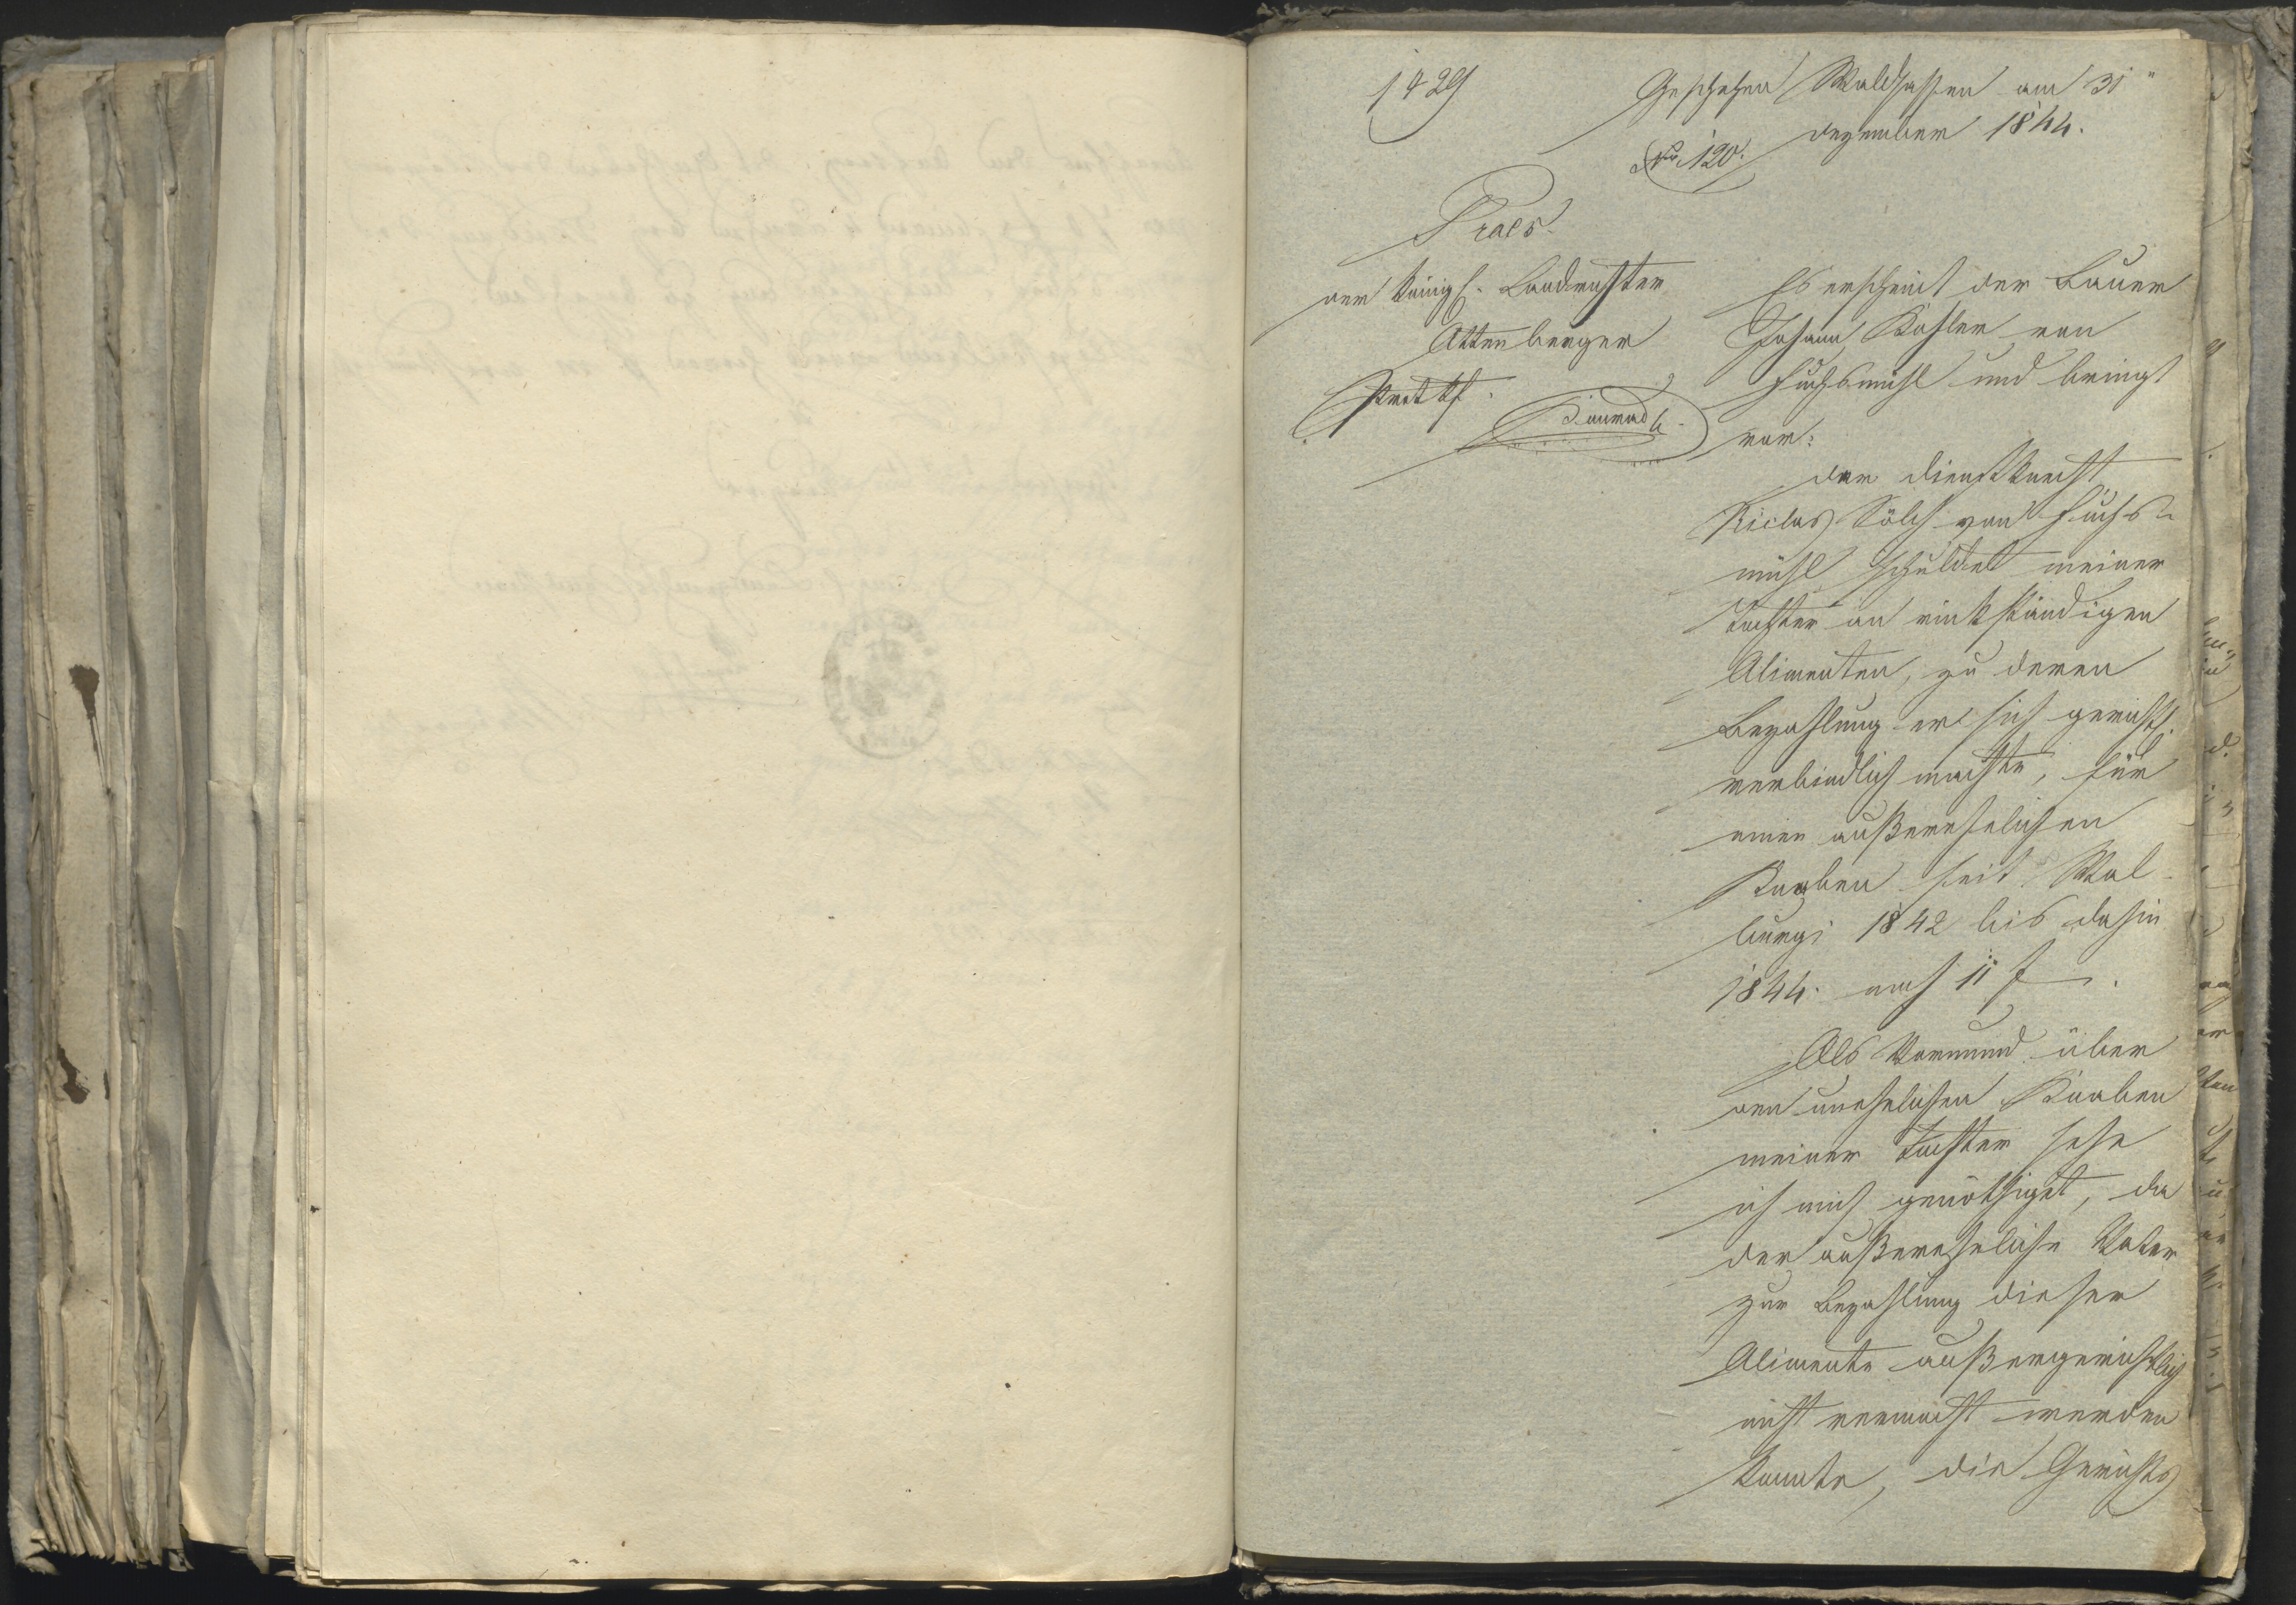 1429
Geschehen Waldsassen am 31"
Dezember 1844.
No. 120.
Praes.
der königl. Landrichter
Attenberger
Protkf.
Es erscheint der Bauer
Johann Kohler von
Fuchsmühl und bringt
vor:
Der Dienstknecht
Niclas Sölch von Fuchs-
mühl schuldet meiner
Tochter an rückständigen
Alimenten, zu deren
Bezahlung er sich gerichtl.
verbindlich machte, für
einen außerehelichen
Knaben seit Wal-
burgi 1842 bis dahin
1844. noch 11 f.
Als Vormund über
den unehelichen Knaben
meiner Tochter sehe
ich mich genöthiget, da
der außereheliche Vater
zur Bezahlung dieser
Alimente außergerichtlich
nicht vermocht werden
konnte, die Gerichts